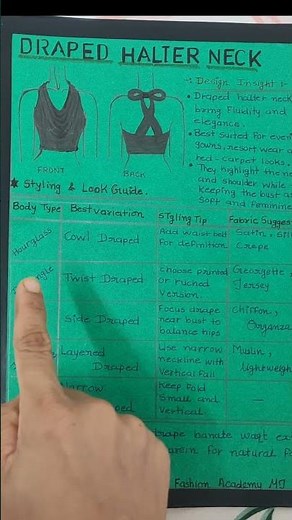 DRAPED HALTER NECK
-: Design Insight :-
• Draped halter neck
bring Fluidity and
elegance.
• Best suited for even
gowns, resort wear a
red-carpet looks.
• They highlight the ne
and shoulder while
keeping the bust a
soft and Feminine
FRONT
BACK
★ Styling & Look Guide.
Body Type Best variation Styling Tip Fabric Sugges
Hourglass Cowl Draped Add waist belt for definition Satin, Crape
Twist Draped Choose printed or ruched version. Georgette, Jersey
Side Draped Focus drape near bust to balance hips Chiffon, Organza
Layered Draped Use narrow neckline with vertical fall Muslin, lightweigh
Narrow Keep Fold Small and Vertical —
drape banate waqt ex
for natural fo
Fashion Academy MJ